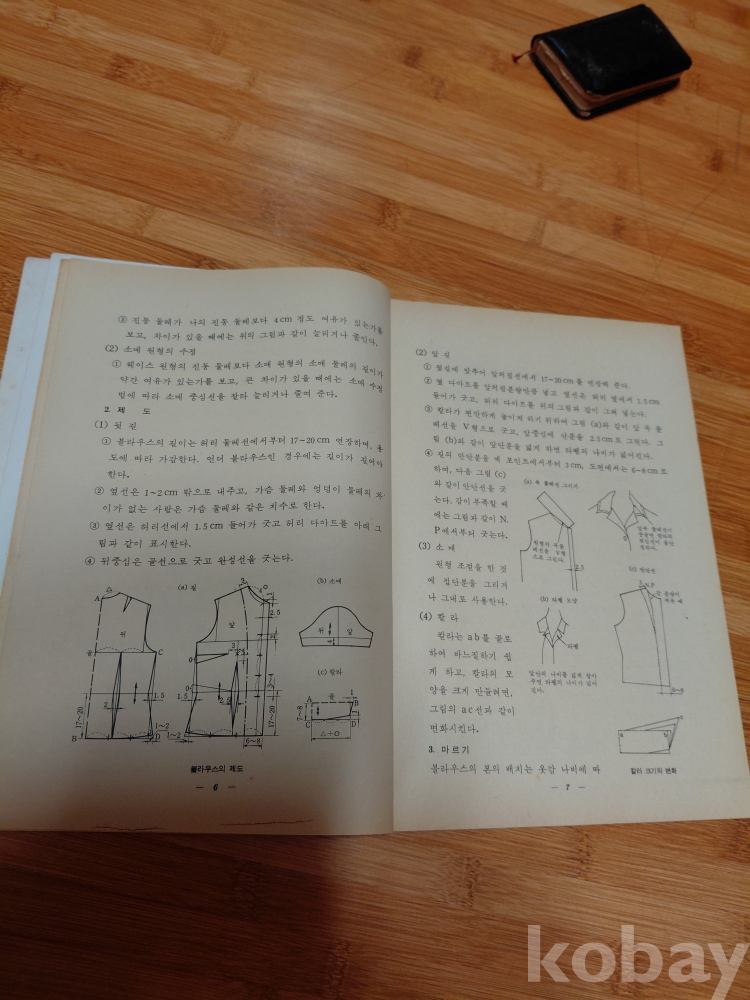 ③ 진동 둘레가 나의 진동 둘레보다 4cm 정도 여유가 있는가를
보고, 차이가 있을 때에는 위의 그림과 같이 늘리거나 줄인다.
(2) 소매 원형의 수정
① 웨이스 원형의 진동 둘레보다 소매 원형의 소매 둘레의 길이가
약간 여유가 있는가를 보고, 큰 차이가 있을 때에는 소매 수정
법에 따라 소매 중심선을 잘라 늘리거나 줄여 준다.
2. 제 도
(1) 뒷 길
① 블라우스의 길이는 허리 둘레선에서부터 17~20cm 연장하며, 용
도에 따라 가감한다. 언더 블라우스인 경우에는 길이가 길어야
한다.
② 옆선은 1~2cm 밖으로 내주고, 가슴 둘레와 엉덩이 둘레의 차
이가 없는 사람은 가슴 둘레와 같은 치수로 한다.
③ 옆선은 허리선에서 1.5cm 들어가 긋고 허리 다아트를 아래 그
림과 같이 표시한다.
④ 뒤중심은 골선으로 긋고 완성선을 긋는다.
(a) 길
(b) 소매
(c) 칼라
A
뒤
앞
골
C
B
D
17~20
2
1.5
1~2
1~2
3
2.5
3
2.5
1.5
3~4
17~20
6~8
뒤
앞
골
1
A
B
C
D
7~8
△+O
블라우스의 제도
— 6 —
(2) 앞 길
① 뒷길에 맞추어 앞처짐선에서 17~20cm를 연장해 준다.
② 옆 다아트를 앞처짐분량만큼 넣고 옆선은 허리 옆에서 1.5cm
들어가 긋고, 허리 다아트를 위의 그림과 같이 그려 넣는다.
③ 칼라가 편안하게 놓이게 하기 위하여 그림 (a)와 같이 앞 목 둘
레선을 V형으로 긋고, 앞중심에 단분을 2.5cm로 그린다. 그
림 (b)와 같이 앞단분을 넓게 하면 라펠의 나비가 넓어진다.
④ 길의 안단분을 넥 포인트에서부터 3cm, 도련에서는 6~8cm로
하여, 다음 그림 (c)
와 같이 안단선을 긋
는다. 감이 부족할 때
에는 그림과 같이 N.
P에서부터 긋는다.
(3) 소 매
원형 조정을 한 것
에 접단분을 그리거
나 그대로 사용한다.
(4) 칼 라
칼라는 a b를 골로
하여 바느질하기 쉽
게 하고, 칼라의 모
양을 크게 만들려면,
그림의 a c선과 같이
변화시킨다.
3. 마르기
블라우스의 본의 배치는 옷감 나비에 따
(a) 목 둘레선 그리기
원형의 목둘
레선을 V형
으로 그린다.
2.5
(b) 라펠 모양
라펠
앞단의 나비를 넓게 잡아
주면 라펠의 나비가 넓어
진다.
(c) 안단선
N.P
6~8
a
b
c
칼라 크기의 변화
— 7 —
kobay